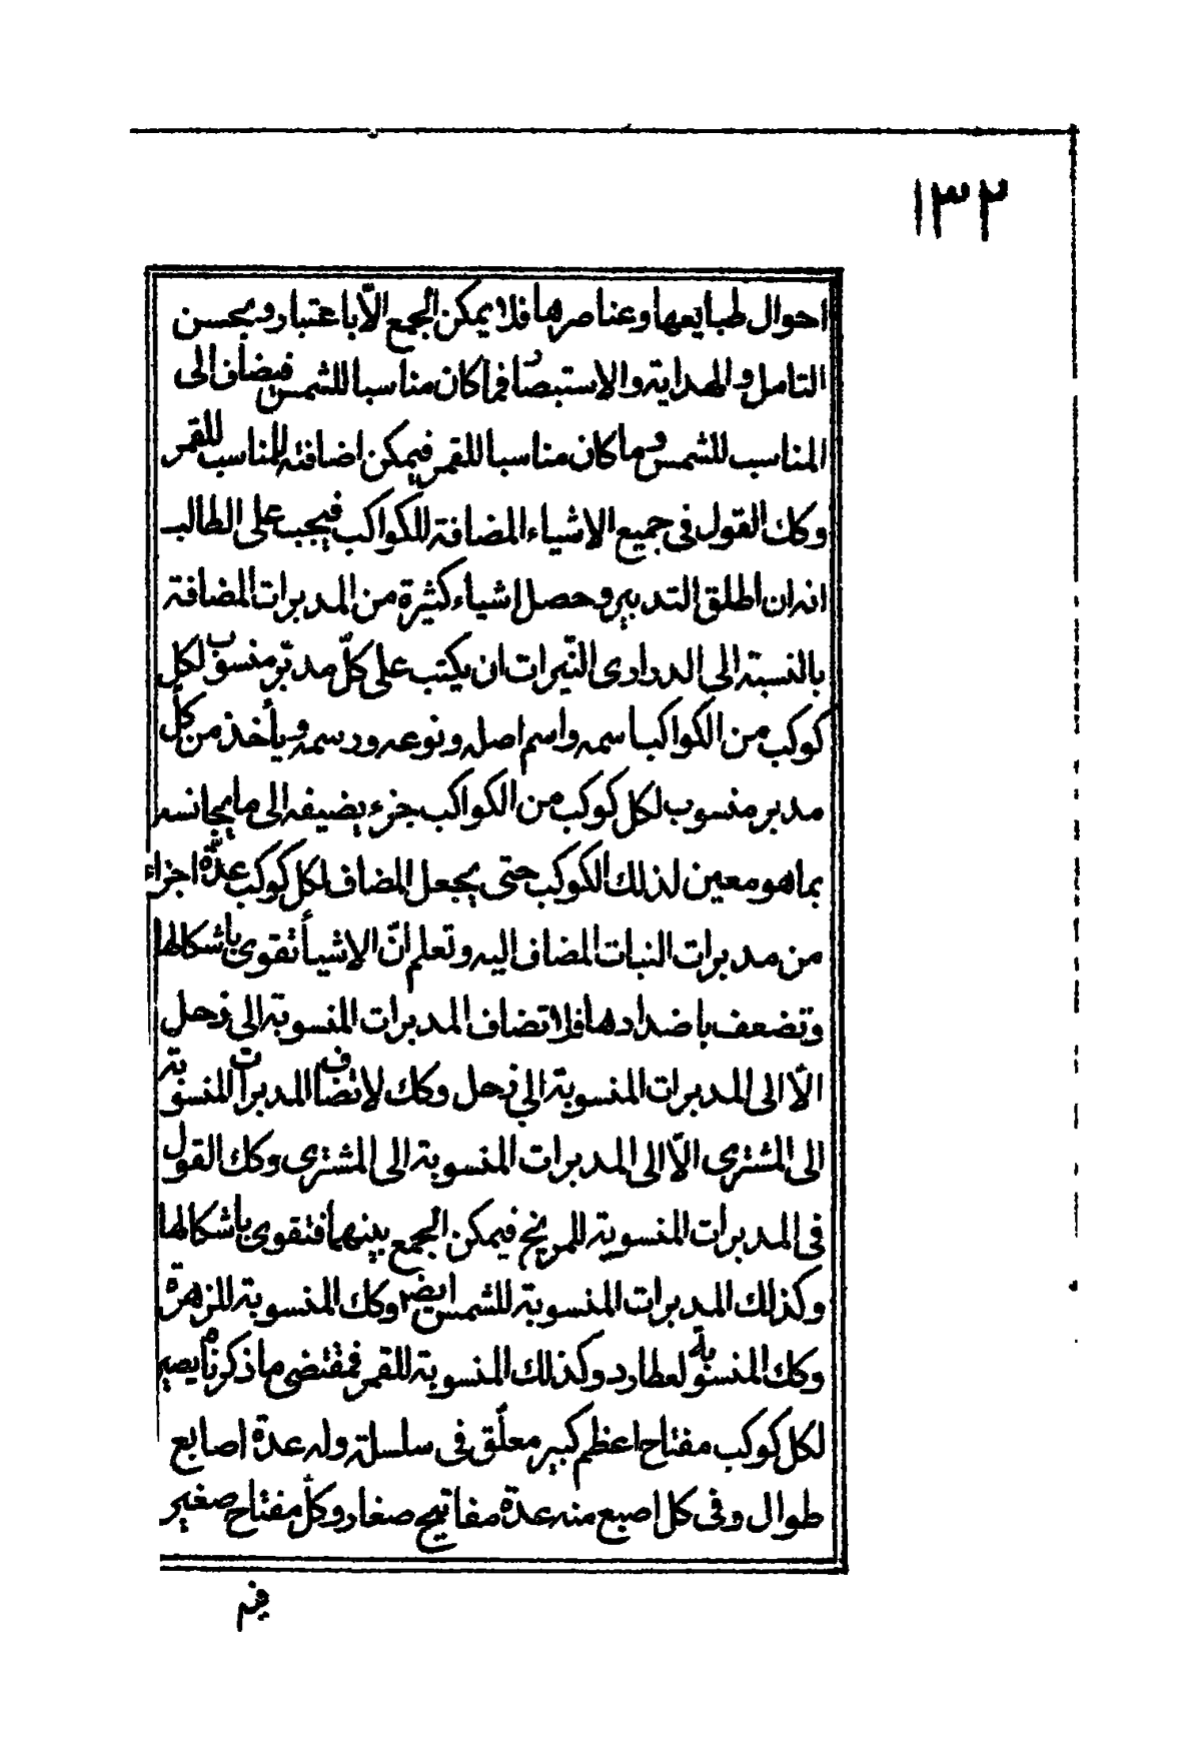 ١٣٢
احوال طبايعها وعناصرها فلا يمكن الجمع الّا باعتبار وبحسن
التامل والهداية والاستبصار فما كان مناسبا للشمس فيضاف الى
المناسب للشمس وما كان مناسبا للقمر فيمكن اضافته للمناسب للقمر
وكك القول فى جميع الاشياء المضافة للكواكب فيجب على الطالب
انه ان اطلق التدبير وحصل اشياء كثيرة من المدبرات المضافة
بالنسبة الى الدرارى النّيرات ان يكتب على كلّ مدبّر منسوب لكل
كوكب من الكواكب اسمه واسم اصله ونوعه ورسمه ويأخذ من كل
مدبر منسوب لكل كوكب من الكواكب جزء يضيفه الى ما يجانسه
بما هو معين لذلك الكوكب حتى يجعل المضاف لكل كوكب عدّة اجزاء
من مدبرات النبات المضاف اليه وتعلم انّ الاشيأ تقوى باشكالها
وتضعف باضدادها فلا تضاف المدبرات المنسوبة الى زحل
الّا الى المدبرات المنسوبة الي زحل وكك لا تضاف المدبرات المنسوبة
الى المشترى الّا الى المدبرات المنسوبة الى المشترى وكك القول
فى المدبرات المنسوبة للمريخ فيمكن الجمع بينهما فتقوى باشكالها
وكذلك المدبرات المنسوبة للشمس ايضر وكك المنسوبة للزهرة
وكك المنسوبة لعطارد وكذلك المنسوبة للقمر فمقتضى ما ذكرناه يصير
لكل كوكب مفتاح اعظم كبير معلّق فى سلسلة وله عدة اصابع
طوال وفى كل اصبع منه عدة مفاتيح صغار وكل مفتاح صغير
فيه